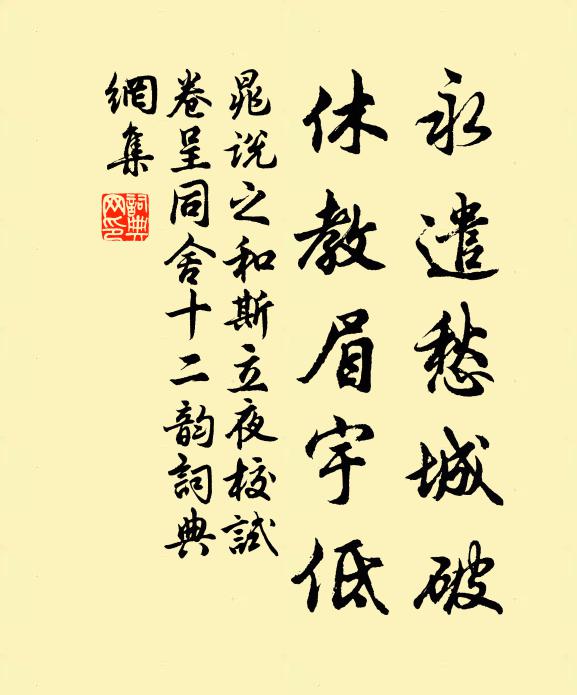 永遣愁城破
休教眉宇低
晁说之和斯立夜校試
卷呈同舍十二韵詞典
網集
詞典网印